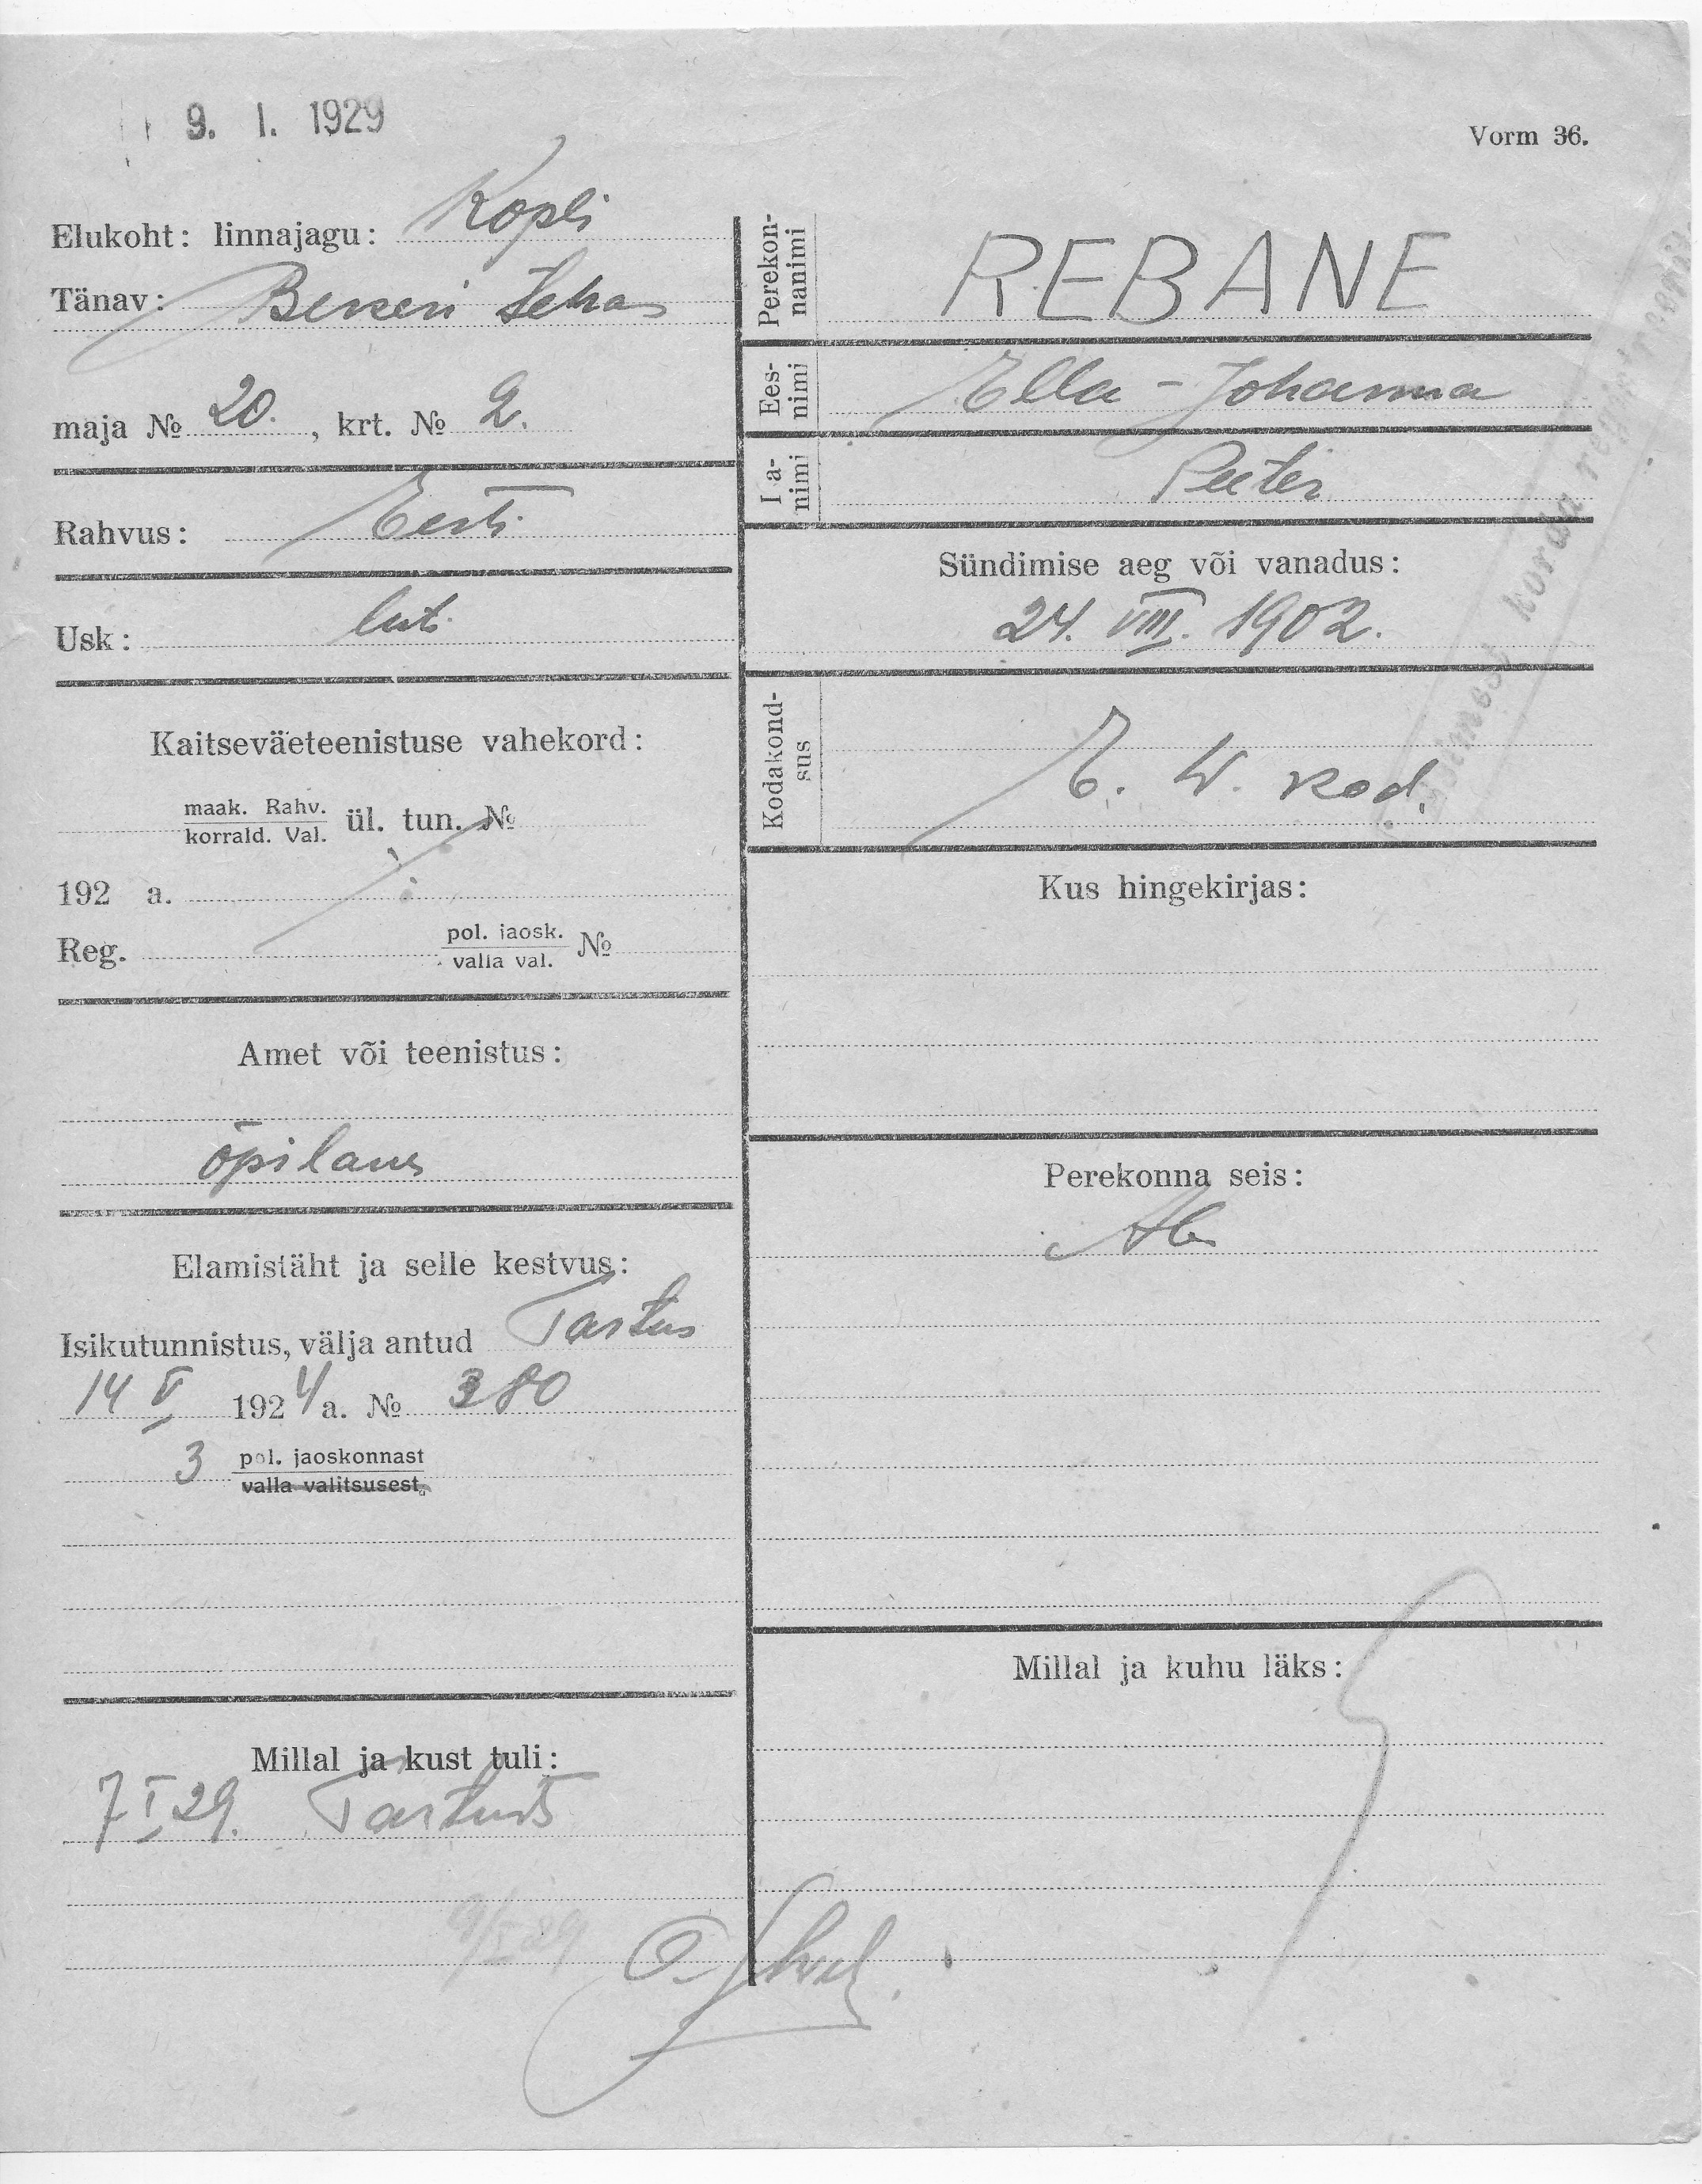 9. I. 1929
Vorm 36.
Elukoht: linnajagu: Kopli
Tänav: Bekeri tehas
maja № 20. , krt. № 2.
Rahvus: Eesti
Usk: lut.
Kaitseväeteenistuse vahekord:
maak. Rahv.
korrald. Val. ül. tun. №
192 a.
Reg. pol. jaosk.
valla val. №
Amet või teenistus:
õpilane
Elamistäht ja selle kestvus:
Isikutunnistus, välja antud Tartus
14 V 1924 a. № 380
3 pol. jaoskonnast
valla valitsusest.
Millal ja kust tuli:
7 I 29. Tartust
9/I 29
Perekon-
nanimi
REBANE
Ees-
nimi
Ella-Johanna
Isa-
nimi
Peeter
Sündimise aeg või vanadus:
24. VIII. 1902.
Kodakond-
sus
E. W. kod.
Esimest korda registreeritud
Kus hingekirjas:
Perekonna seis:
Millal ja kuhu läks: